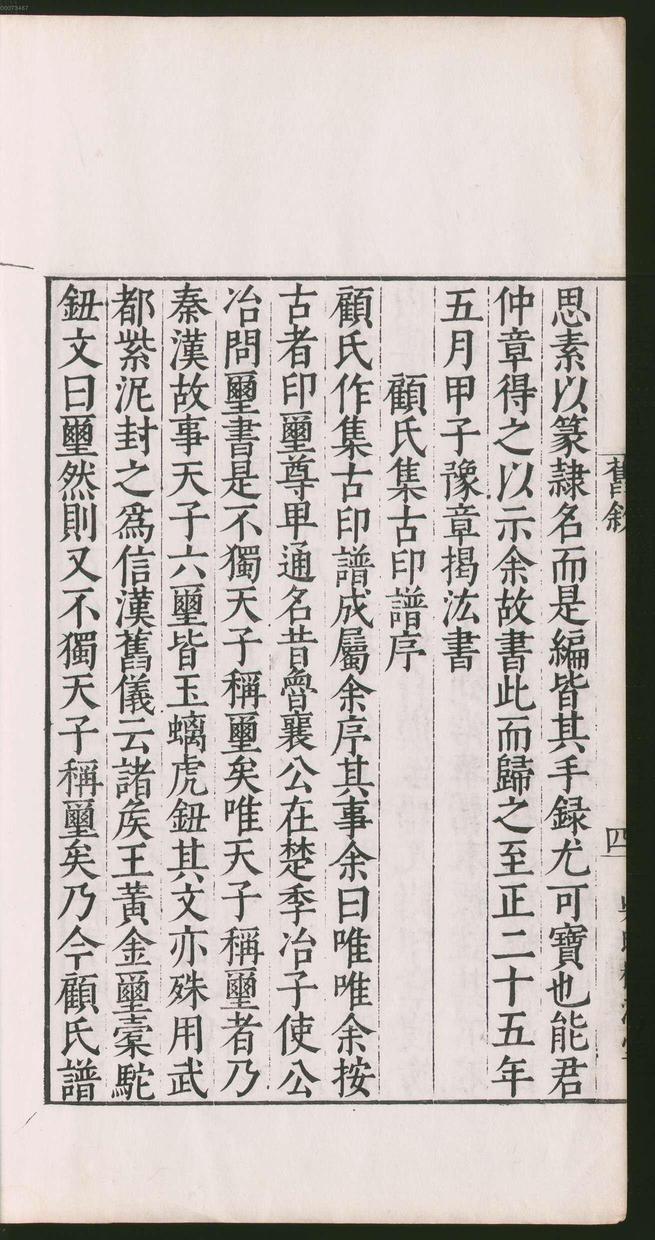 思素以篆隷名而是編皆其手録尤可寶也能君
仲章得之以示余故書此而歸之至正二十五年
五月甲子豫章揭汯書
顧氏集古印譜序
顧氏作集古印譜成屬余序其事余曰唯唯余按
古者印璽尊卑通名昔魯襄公在楚季冶子使公
冶問璽書是不獨天子稱璽矣唯天子稱璽者乃
秦漢故事天子六璽皆玉螭虎鈕其文亦殊用武
都紫泥封之爲信漢舊儀云諸矦王黃金璽橐駝
鈕文曰璽然則又不獨天子稱璽矣乃今顧氏譜
舊敘
四
00073467